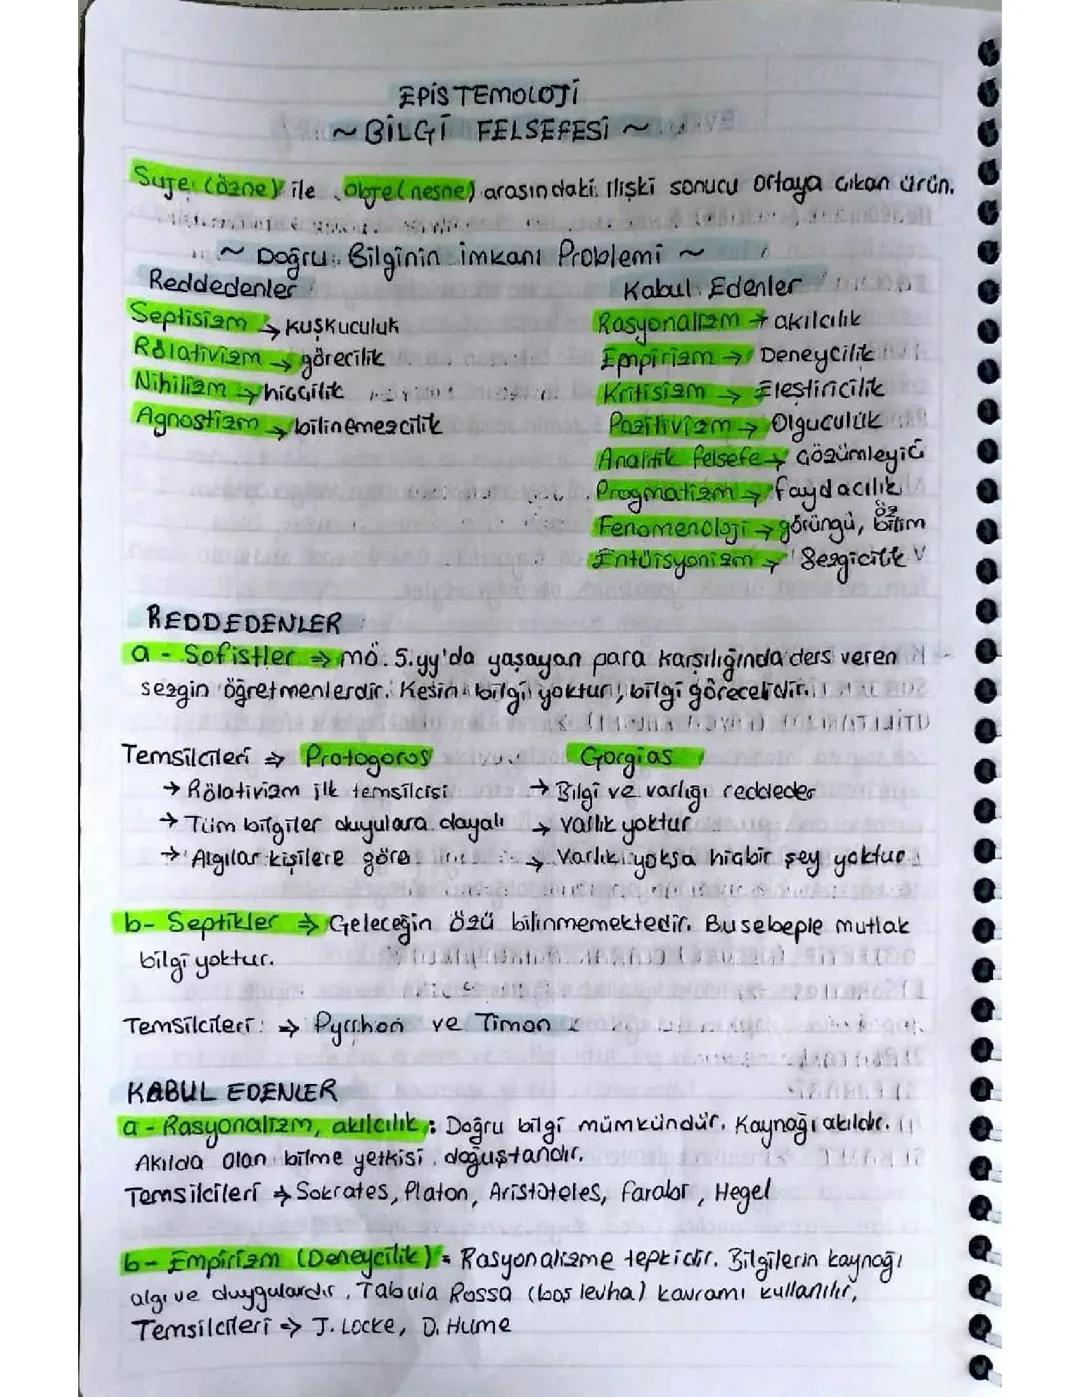 EPİSTEMOLOJİ
~ BİLGİ FELSEFESİ ~
Suje (özne) ile obje (nesne) arasındaki ilişki sonucu ortaya çıkan ürün.
~ Doğru Bilginin imkanı Problemi ~
Reddedenler
Septisizm → kuşkuculuk
Rölativizm → görecilik
Nihilizm → hiççilik
Agnostizm → bilinemezcilik
Kabul Edenler
Rasyonalizm → akılcılık
Empirizm → Deneycilik
Kritisizm → Eleştiricilik
Pozitivizm → Olguculuk
Analitik felsefe → Çözümleyici
Pragmatizm → faydacılık
Fenomenoloji → görüngü, öz bilim
Entüisyonizm → Sezgicilik
REDDEDENLER
a - Sofistler ⇒ mö. 5.yy'da yaşayan para karşılığında ders veren
sezgin öğretmenlerdir. Kesin bilgi yoktur, bilgi görecelidir.
Temsilcileri ⇒ Protogoros Gorgias
→ Rölativizm ilk temsilcisi → Bilgi ve varlığı reddeder
→ Tüm bilgiler duyulara dayalı → varlık yoktur
→ Algılar kişilere göre → Varlık yoksa hiçbir şey yoktur
b- Septikler ⇒ Geleceğin özü bilinmemektedir. Bu sebeple mutlak
bilgi yoktur.
Temsilcileri ⇒ Pyrrhon ve Timon
KABUL EDENLER
a - Rasyonalizm, akılcılık : Doğru bilgi mümkündür. Kaynağı akıldır.
Akılda olan bilme yetkisi doğuştandır.
Temsilcileri → Sokrates, Platon, Aristoteles, farabi, Hegel
b- Empirizm (Deneycilik) = Rasyonalizme tepkidir. Bilgilerin kaynağı
algı ve duygulardır. Tabula Rossa (boş levha) kavramı kullanılır,
Temsilcileri ⇒ J. Locke, D. Hume